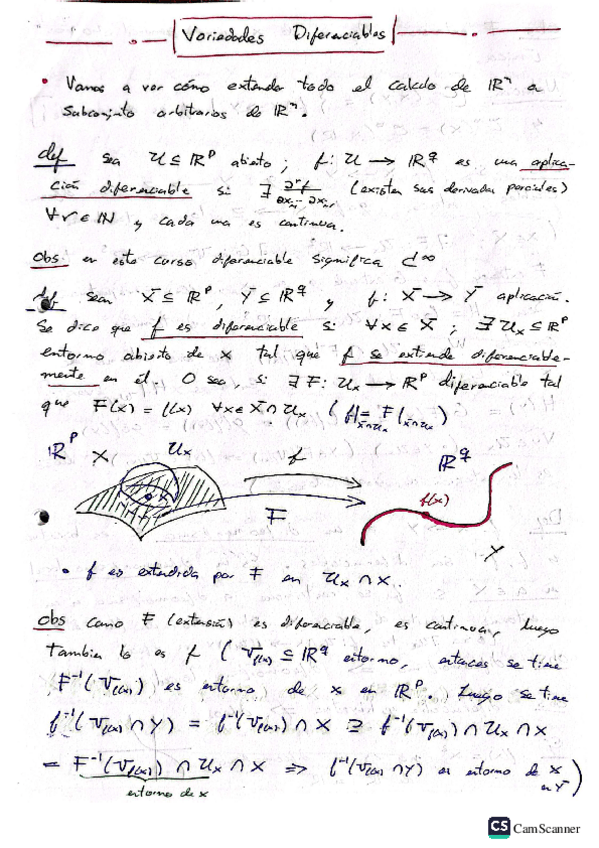 Variedades Diferenciables
• Vamos a ver cómo extender todo el calculo de ℝⁿ a
subconjunto arbitrarios de ℝⁿ.
def sea U ⊆ ℝᵖ abierto ; f: U → ℝ^q es una aplica-
ción diferenciable si ∃ ∂ʳf / ∂x_{i1} ... ∂x_{ir} (existen sus derivadas parciales)
∀ r ∈ ℕ y cada una es continua.
obs en este curso diferenciable significa C^∞
def sean X ⊆ ℝᵖ, Y ⊆ ℝ^q y f: X → Y aplicación.
Se dice que f es diferenciable si ∀x ∈ X ; ∃ U_x ⊆ ℝᵖ
entorno abierto de x tal que f se extiende diferenciable-
mente en él. O sea si ∃ F: U_x → ℝᵖ diferenciable tal
que F(x) = f(x) ∀x ∈ X ∩ U_x ( f|_{X∩U_x} = F|_{X∩U_x} )
ℝᵖ X U_x f ℝ^q
x F f(x)
Y
• f es extendida por F en U_x ∩ X.
obs como F (extensión) es diferenciable, es continua, luego
tambien lo es f ( V_{f(x)} ⊆ ℝ^q entorno, entonces se tiene
F⁻¹(V_{f(x)}) es entorno de x en ℝᵖ. Luego se tiene
f⁻¹(V_{f(x)} ∩ Y) = f⁻¹(V_{f(x)}) ∩ X ⊇ f⁻¹(V_{f(x)}) ∩ U_x ∩ X
= F⁻¹(V_{f(x)}) ∩ U_x ∩ X ⇒ f⁻¹(V_{f(x)} ∩ Y) es entorno de x
entorno de x
CS CamScanner